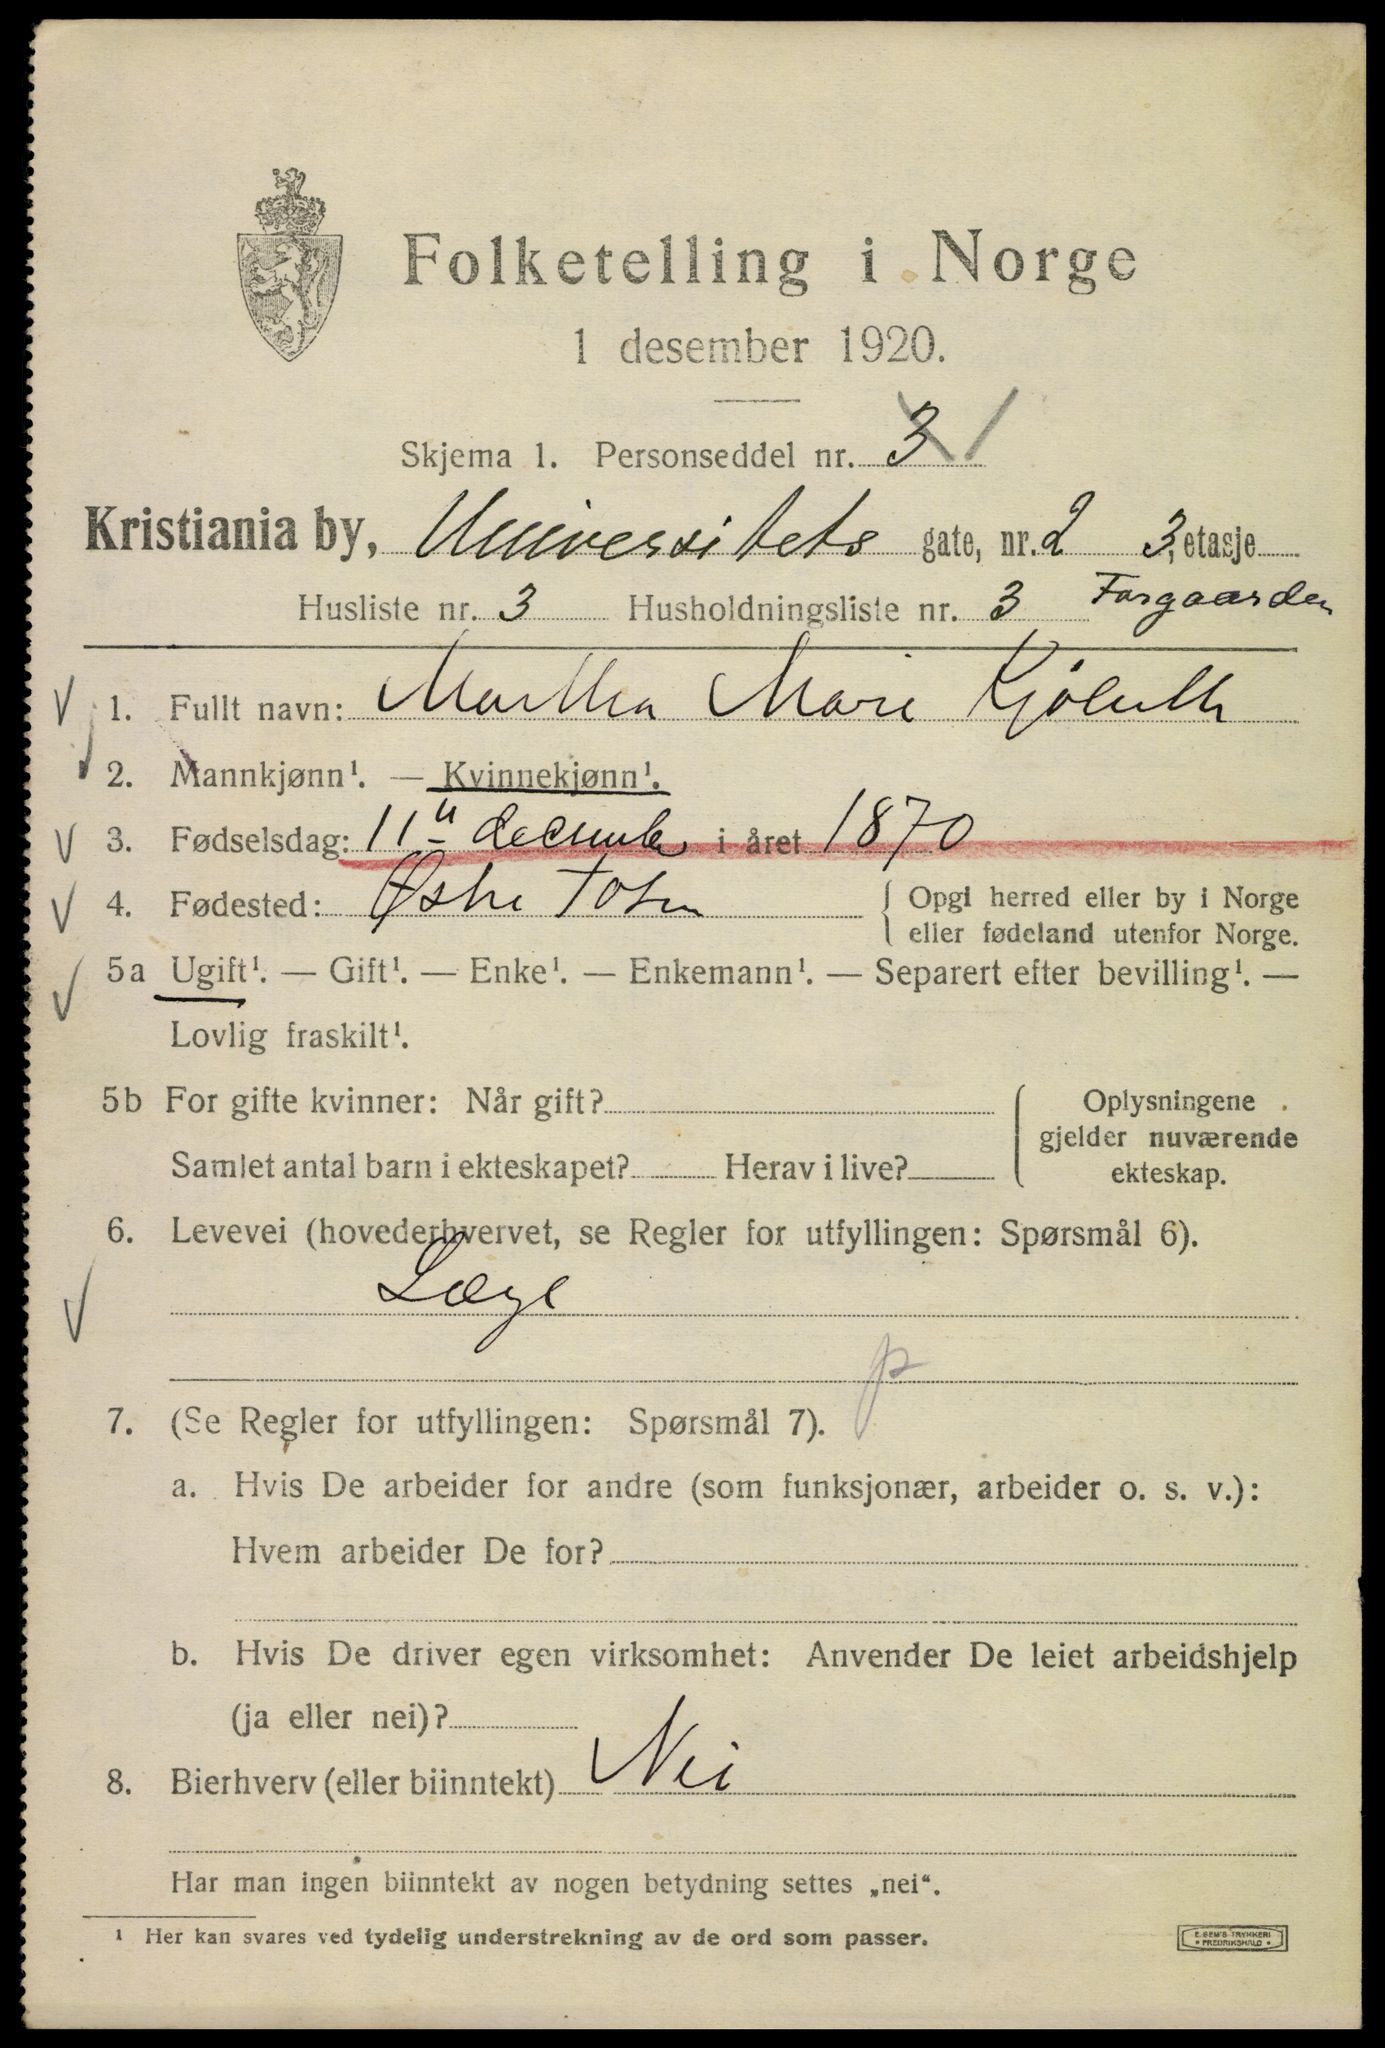 Folketelling i Norge
1 desember 1920.
Skjema 1. Personseddel nr. 3 /
Kristiania by, Universitets gate, nr. 2 3, etasje
Husliste nr. 3 Husholdningsliste nr. 3 Forgaarden
1. Fullt navn: Martha Marie Kjölseth
2. Mannkjønn¹. — Kvinnekjønn¹.
3. Fødselsdag: 11te december i året 1870
4. Fødested: Østre Toten { Opgi herred eller by i Norge
eller fødeland utenfor Norge.
5a Ugift¹. — Gift¹. — Enke¹. — Enkemann¹. — Separert efter bevilling¹. —
Lovlig fraskilt¹.
5b For gifte kvinner: Når gift? Oplysningene
gjelder nuværende
Samlet antal barn i ekteskapet? Herav i live? ekteskap.
6. Levevei (hovederhvervet, se Regler for utfyllingen: Spørsmål 6).
Læge
p
7. (Se Regler for utfyllingen: Spørsmål 7).
a. Hvis De arbeider for andre (som funksjonær, arbeider o. s. v.):
Hvem arbeider De for?
b. Hvis De driver egen virksomhet: Anvender De leiet arbeidshjelp
(ja eller nei)?
8. Bierhverv (eller biinntekt) Nei
Har man ingen biinntekt av nogen betydning settes „nei“.
¹ Her kan svares ved tydelig understrekning av de ord som passer.
E. SEM'S TRYKKERI
• FREDRIKSHALD •